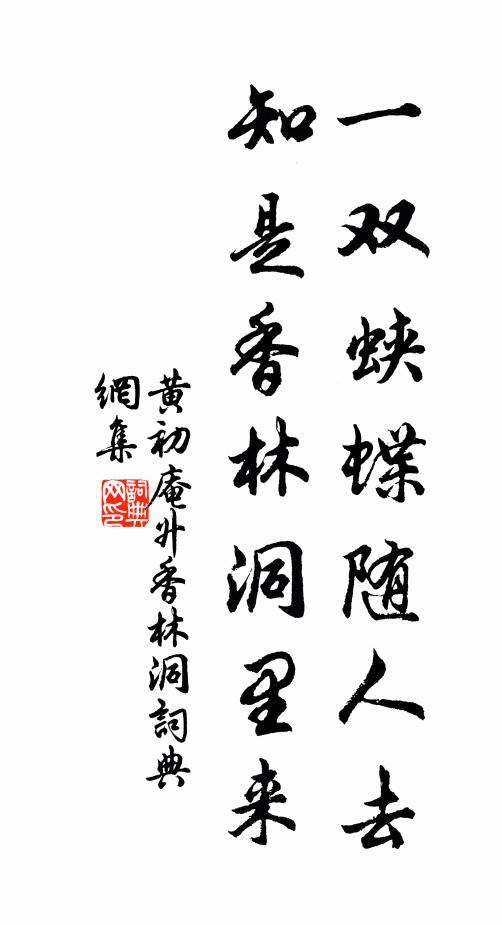 一双蛱蝶随人去
知是香林洞里来
黄初庵外香林洞詞典
網集
詞典
网印